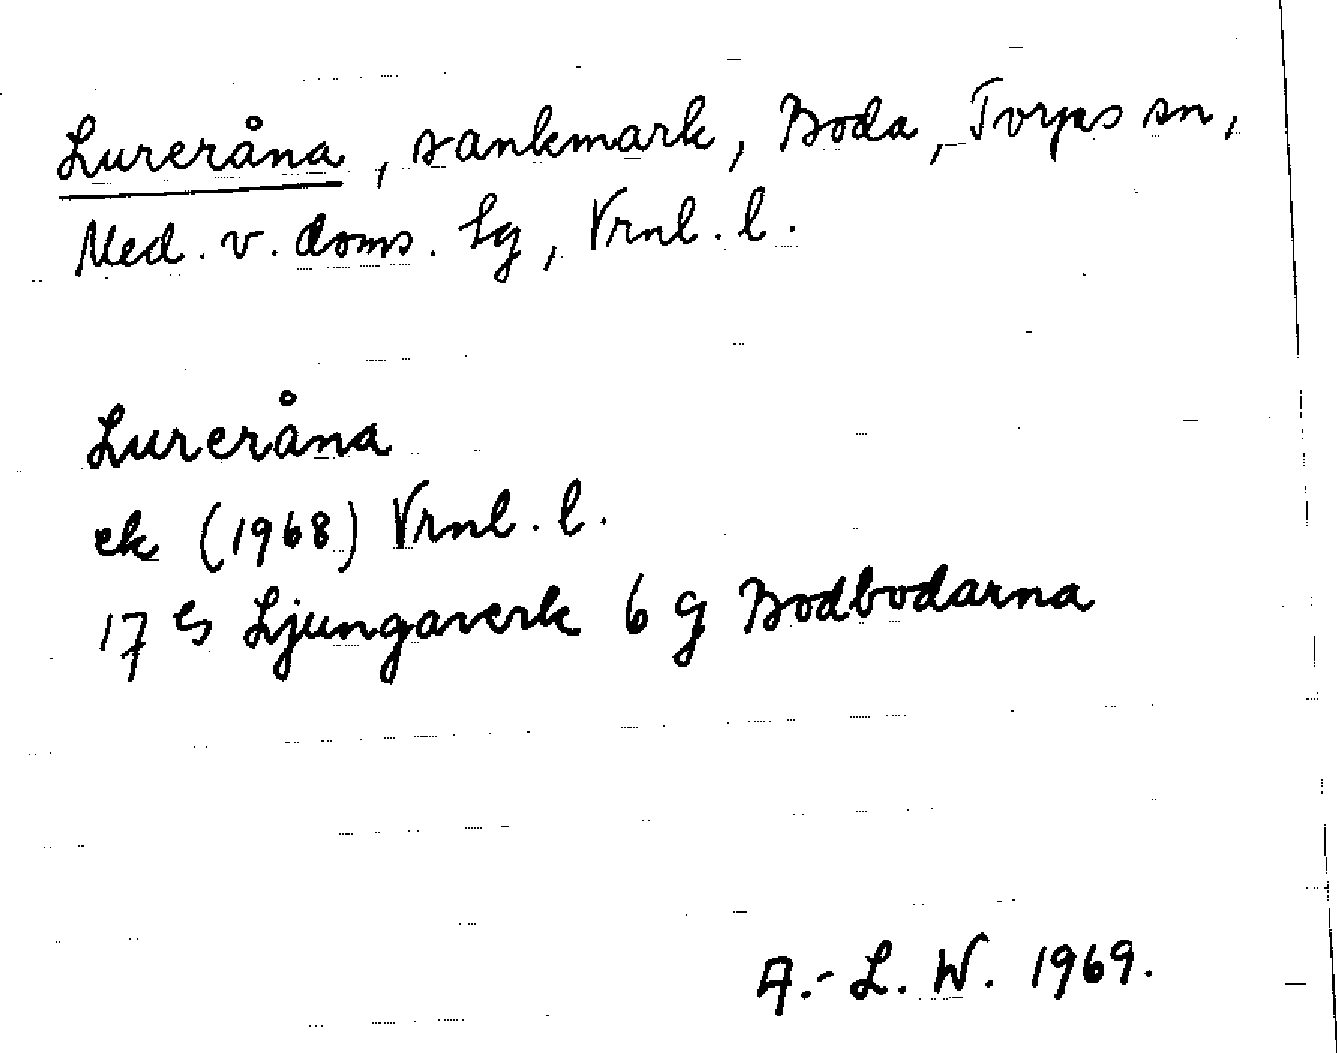 Lureråna, sankmark, Boda, Torps sn,
Med. v. doms. Lg, Vrnl. l.
Lureråna
ek (1968) Vrnl. l.
17 G Ljungaverk 6 g Bodbodarna
A.-L. W. 1969.